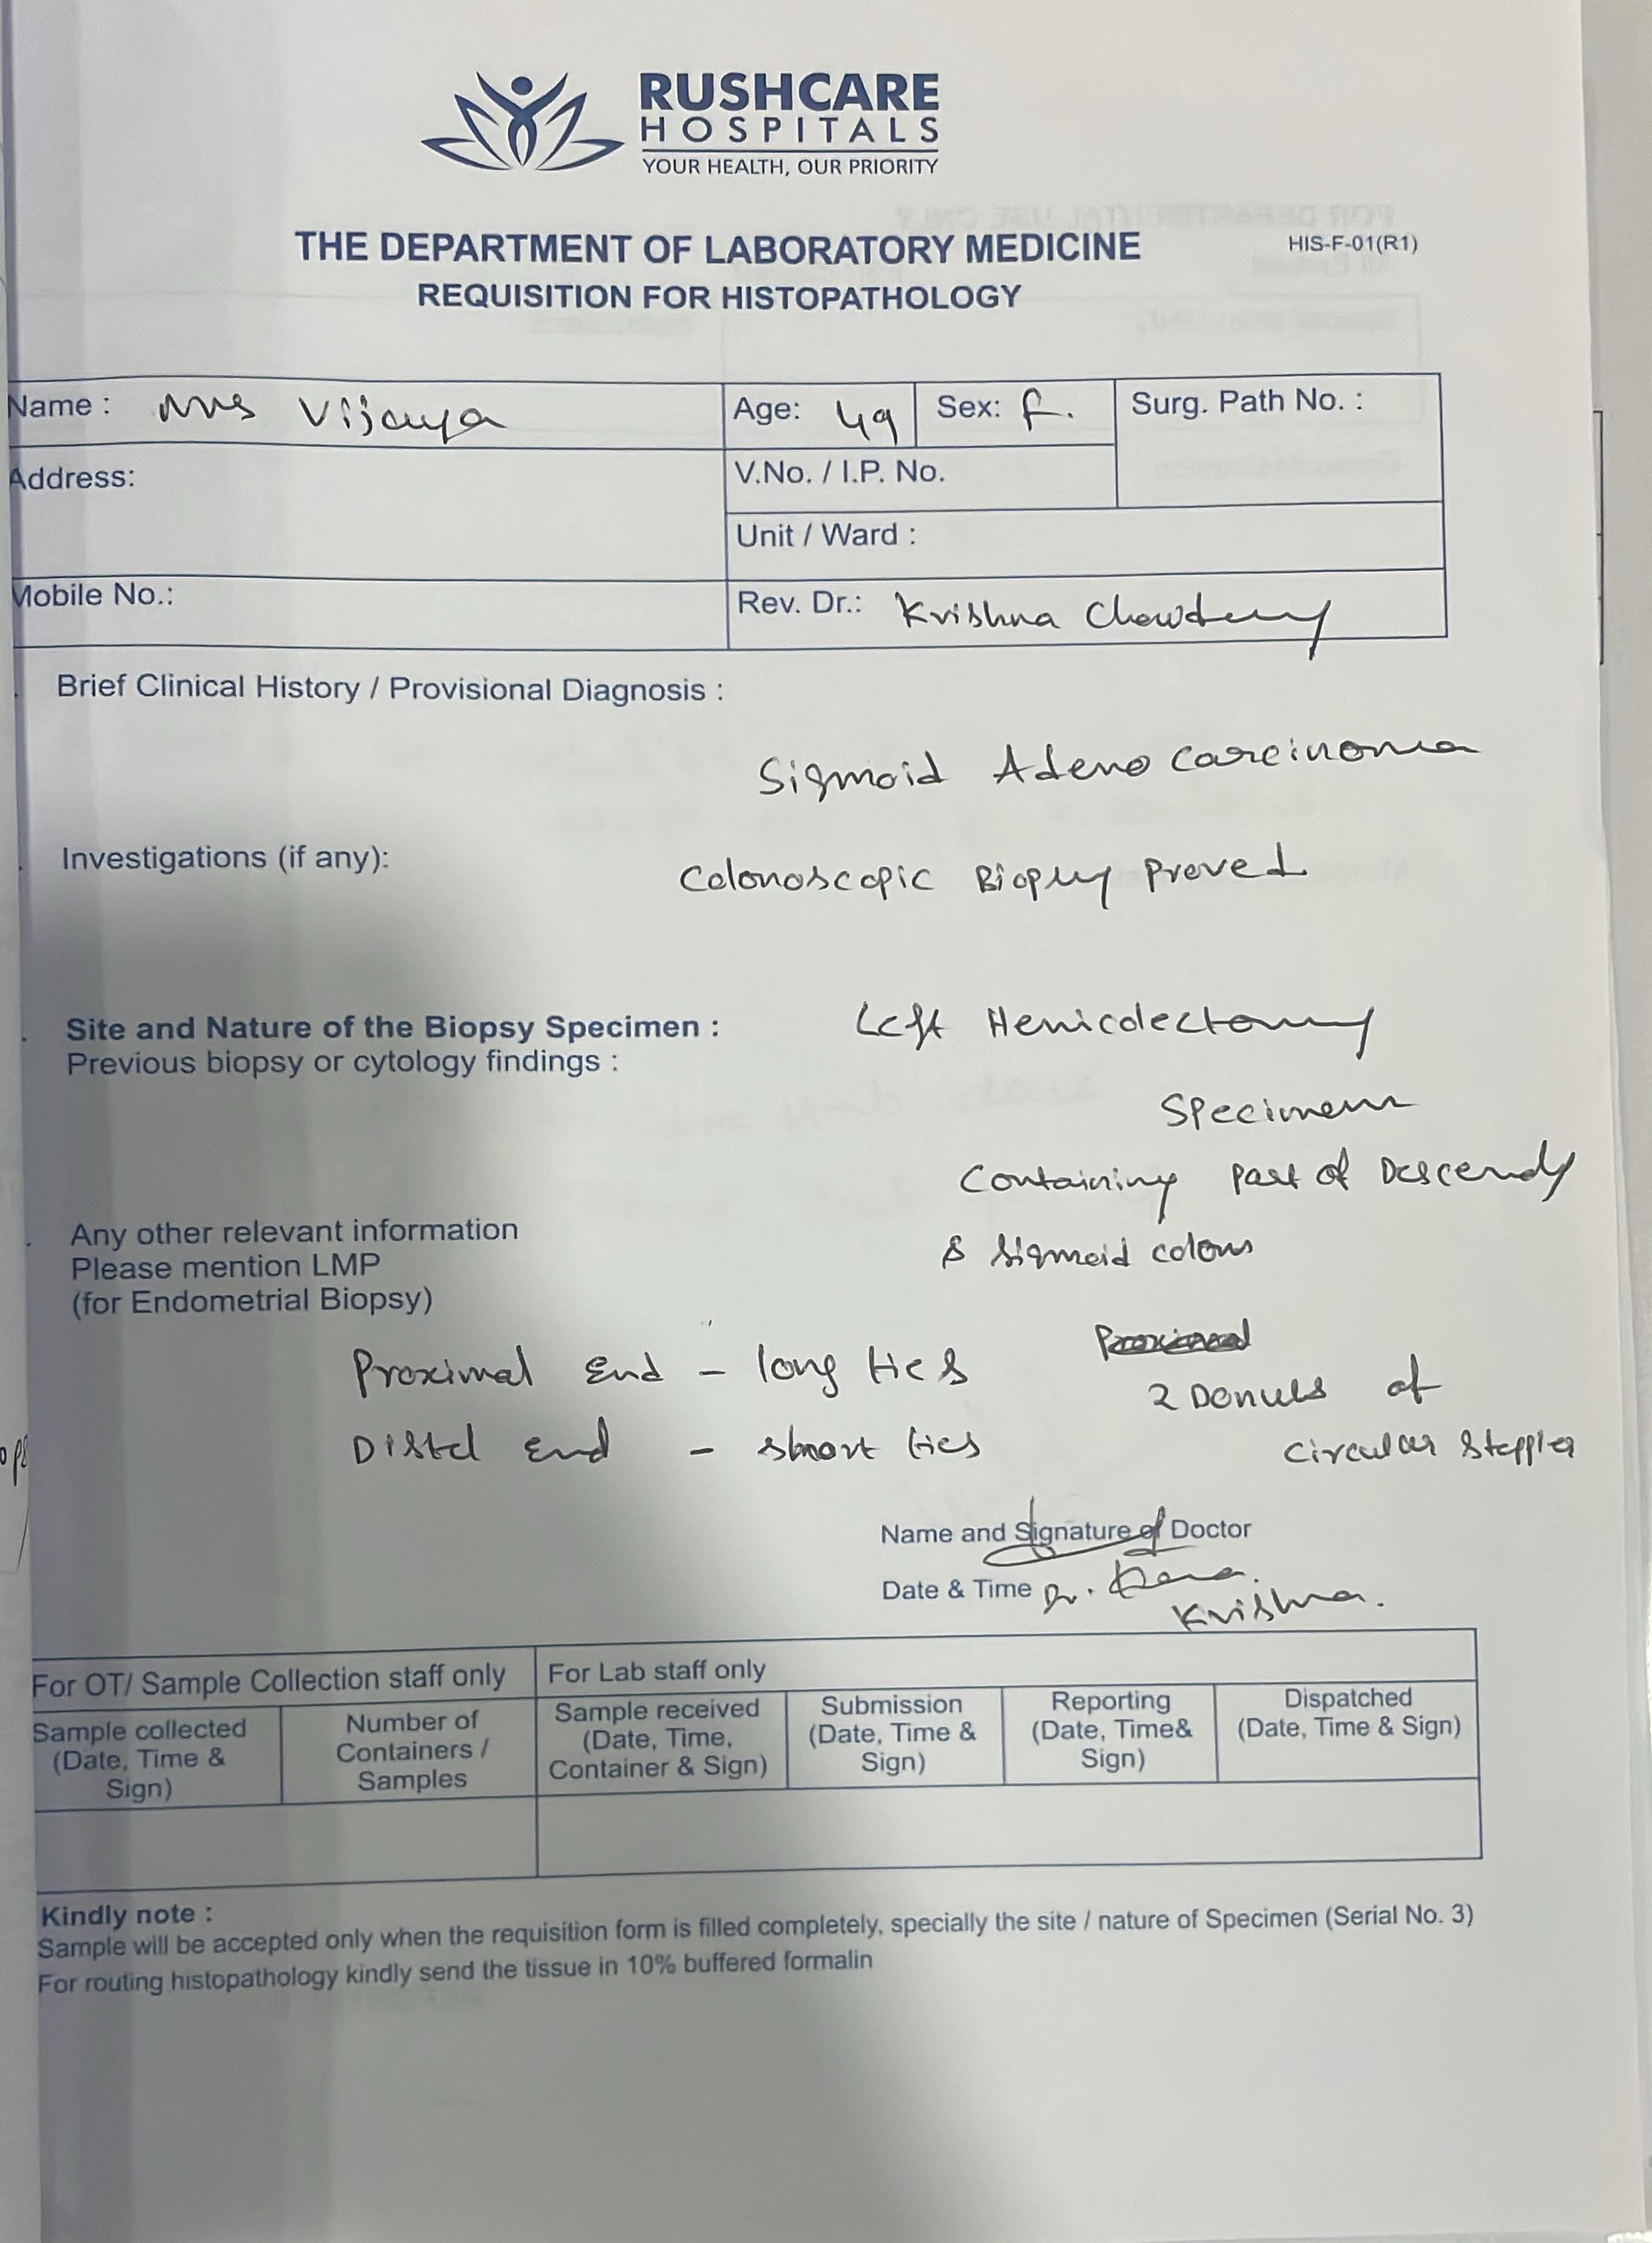 RUSHCARE
HOSPITALS
YOUR HEALTH, OUR PRIORITY
THE DEPARTMENT OF LABORATORY MEDICINE
HIS-F-01(R1)
REQUISITION FOR HISTOPATHOLOGY
Name : Mrs Vijaya
Age: 49
Sex: F.
Surg. Path No. :
Address:
V.No. / I.P. No.
Unit / Ward :
Mobile No.:
Rev. Dr.: Krishna Chowdery
Brief Clinical History / Provisional Diagnosis :
Sigmoid Adeno carcinoma
Investigations (if any):
Colonoscopic Biopsy Proved
Site and Nature of the Biopsy Specimen : Left Hemicolectomy
Previous biopsy or cytology findings :
Specimen
Containing Part of Descendy
Any other relevant information
& Sigmoid colon
Please mention LMP
(for Endometrial Biopsy)
Proximal End - long ties
2 Donuts of
Distal End - short ties
Circular Steppler
Name and Signature of Doctor
Date & Time Dr.
Krishna.
For OT/ Sample Collection staff only
For Lab staff only
Sample collected
(Date, Time &
Sign)
Number of
Containers /
Samples
Sample received
(Date, Time,
Container & Sign)
Submission
(Date, Time &
Sign)
Reporting
(Date, Time&
Sign)
Dispatched
(Date, Time & Sign)
Kindly note :
Sample will be accepted only when the requisition form is filled completely, specially the site / nature of Specimen (Serial No. 3)
For routing histopathology kindly send the tissue in 10% buffered formalin